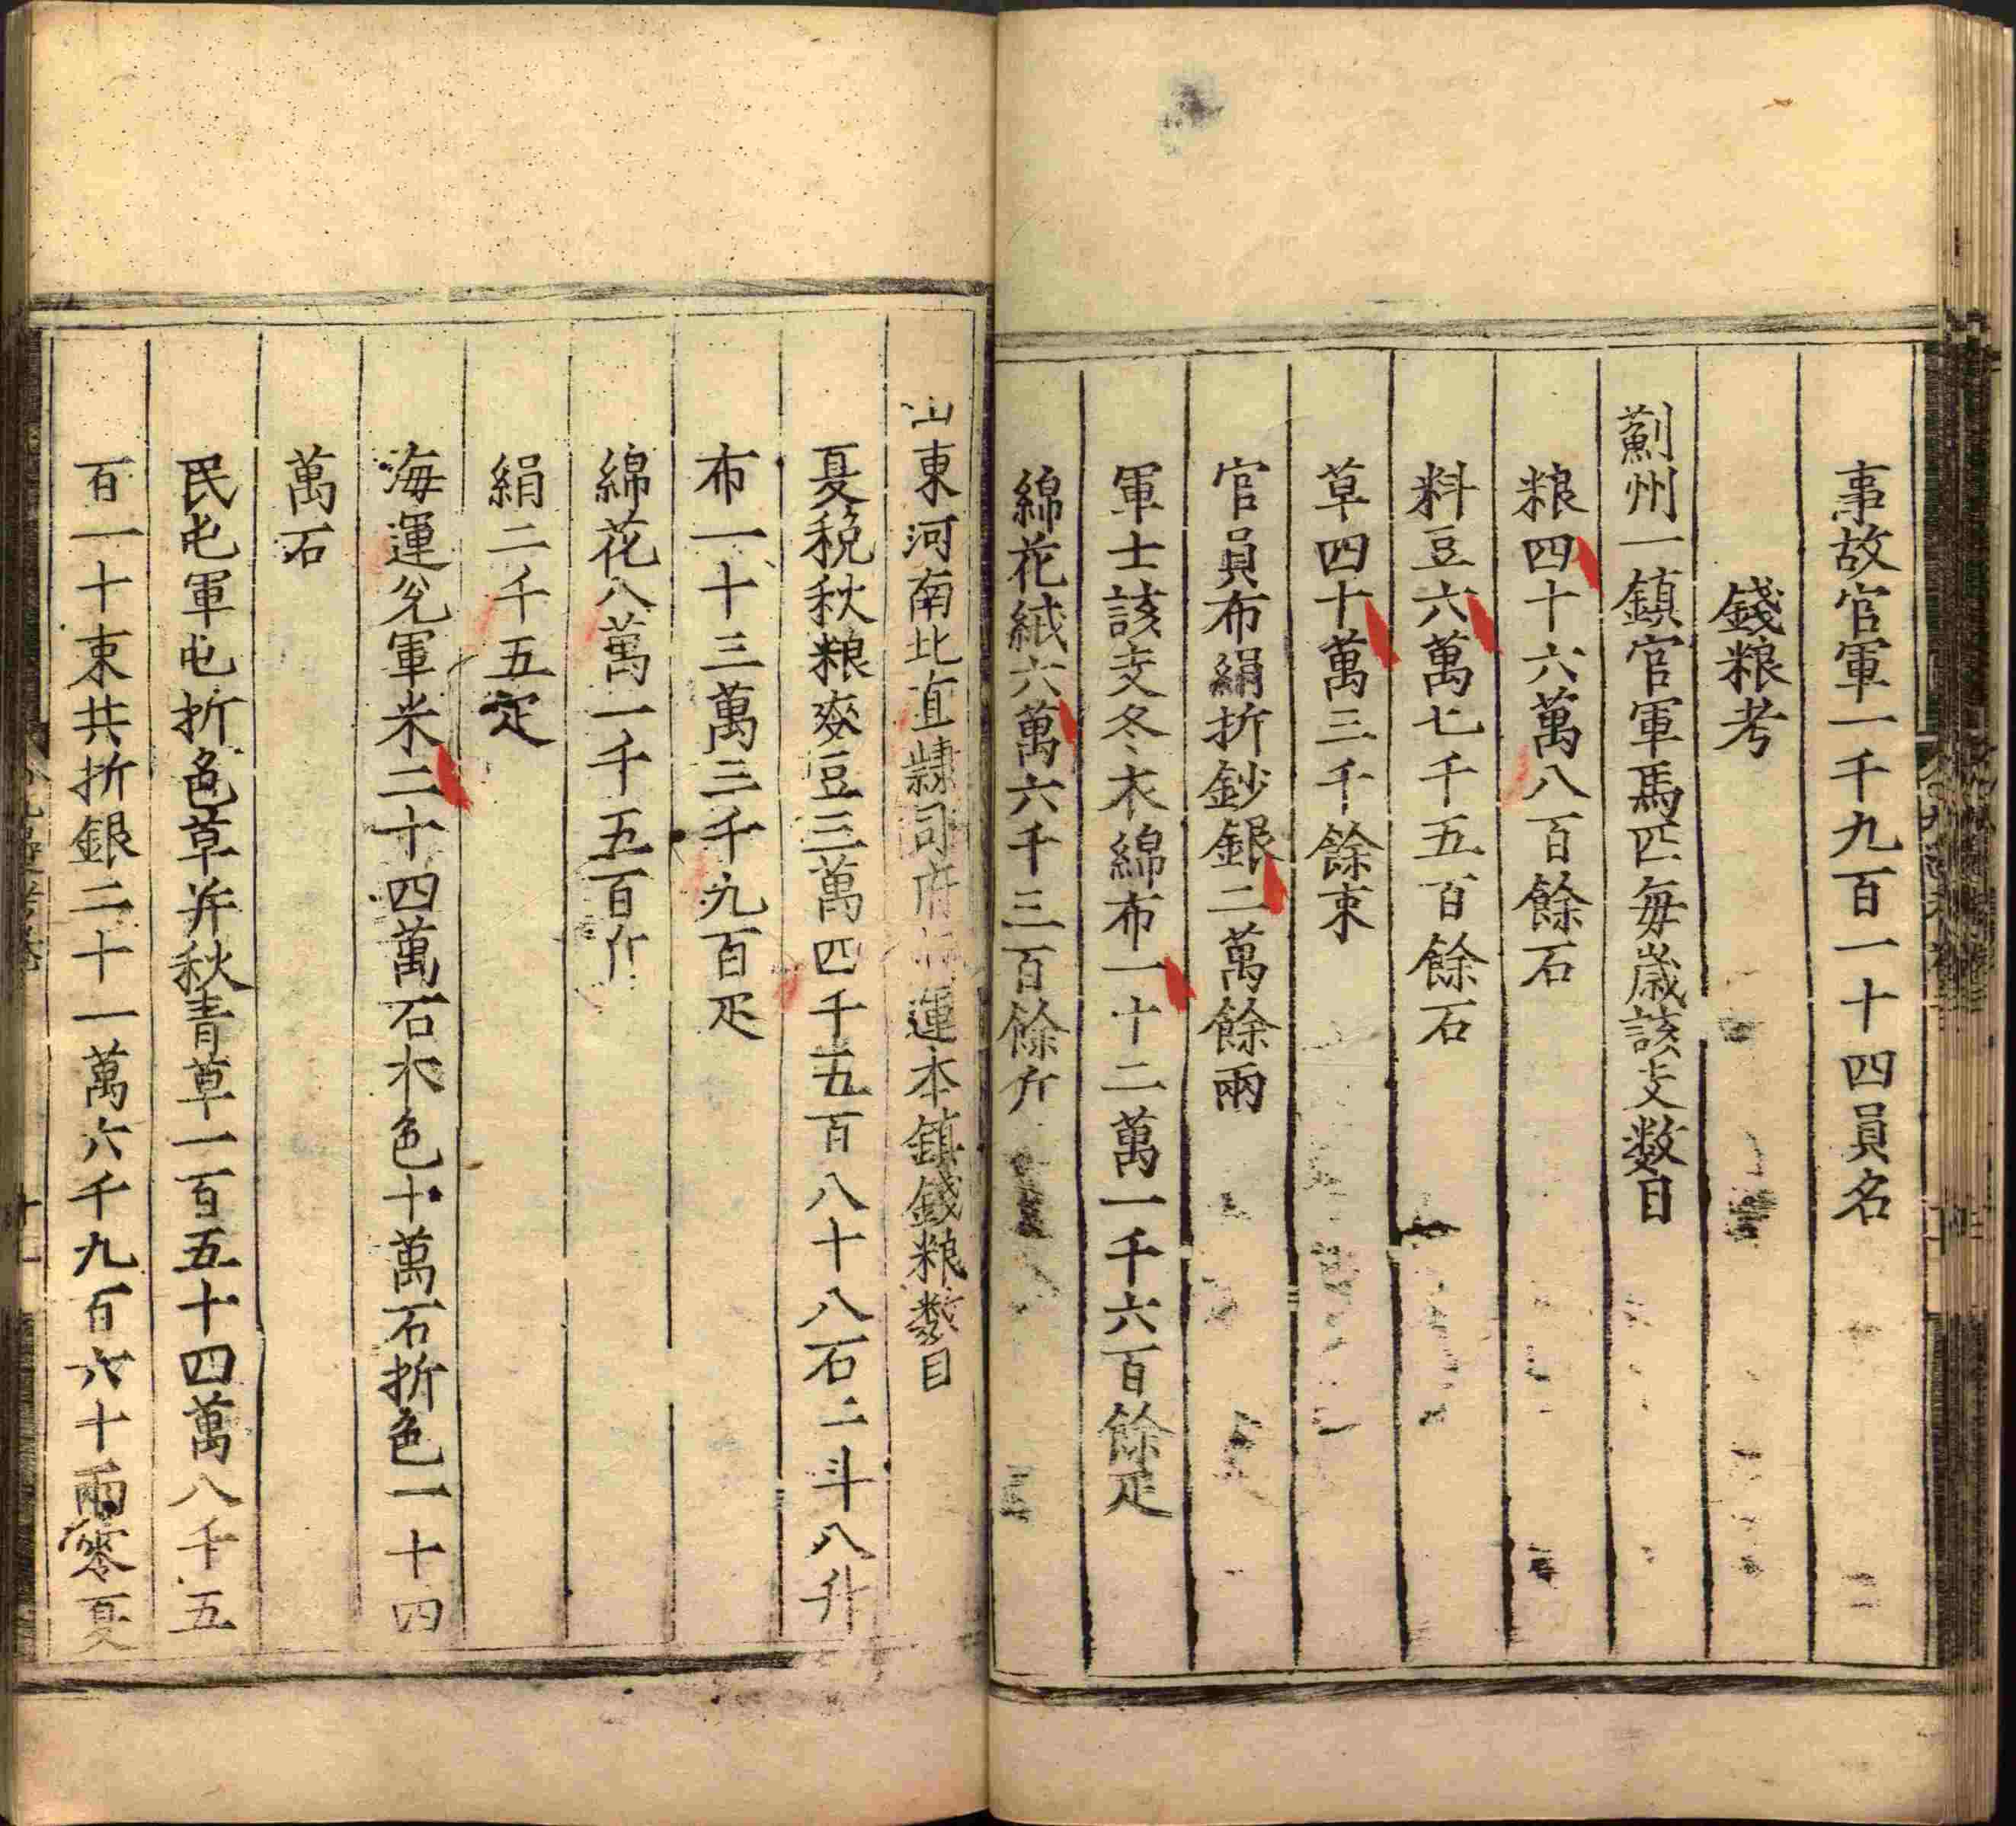 事故官軍一千九百一十四員名
錢粮考
薊州一鎮官軍馬匹每歲該支数目
粮四十六萬八百餘石
料豆六萬七千五百餘石
草四十萬三千餘束
官員布絹折鈔銀二萬餘兩
軍士該支冬衣綿布一十二萬一千六百餘疋
綿花絨六萬六千三百餘斤
山東河南北直隸司府運本鎮錢粮数目
夏稅秋粮麥豆三萬四千五百八十八石二斗八升
布一十三萬三千九百疋
綿花八萬一千五百斤
絹二千五疋
海運兊軍米二十四萬石本色十萬石折色一十四
萬石
民屯軍屯折色草并秋青草一百五十四萬八千五
百一十束共折銀二十一萬六千九百六十兩零夏